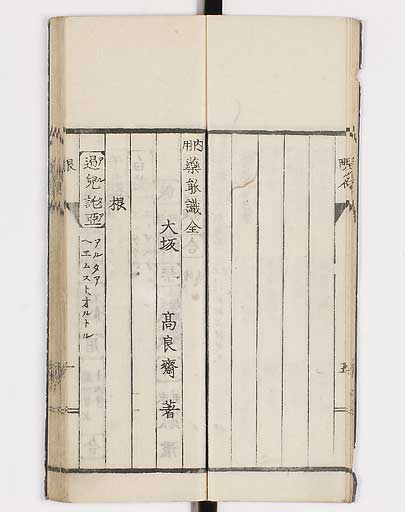 内用藥能識全
大坂 髙良齋 著
根
過兒託亞 アルタア
ヘエムストオルトル
根
五